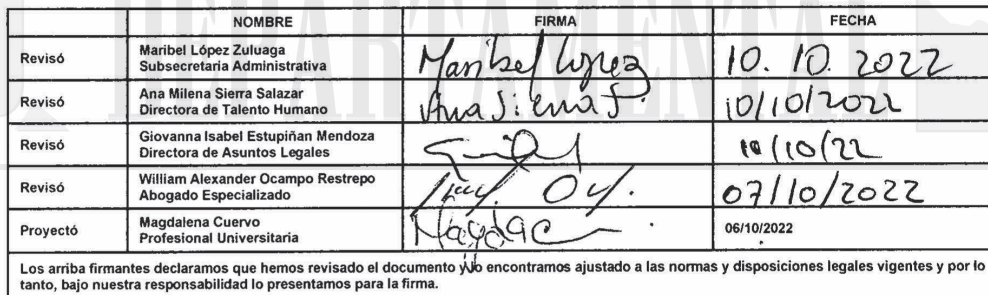 NOMBRE FIRMA FECHA
Revisó Maribel López Zuluaga
Subsecretaria Administrativa Maribel López 10. 10. 2022
Revisó Ana Milena Sierra Salazar
Directora de Talento Humano Ana Sierra S. 10/10/2022
Revisó Giovanna Isabel Estupiñan Mendoza
Directora de Asuntos Legales 10/10/22
Revisó William Alexander Ocampo Restrepo
Abogado Especializado 07/10/2022
Proyectó Magdalena Cuervo
Profesional Universitaria 06/10/2022
Los arriba firmantes declaramos que hemos revisado el documento y lo encontramos ajustado a las normas y disposiciones legales vigentes y por lo
tanto, bajo nuestra responsabilidad lo presentamos para la firma.
DEPARTAMENTAL